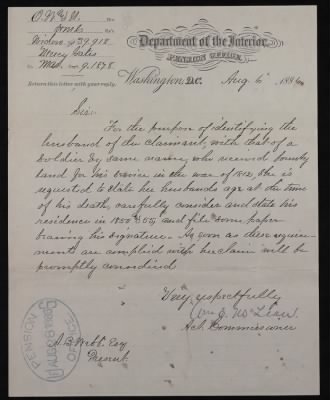 O. W. & N. Div.
Widow 39.918
Mercy Bates
Mar. 9. 1878
Return this letter with your reply.
Department of the Interior,
PENSION OFFICE,
Washington, D.C. Aug 6" 188
Sir:
For the purpose of identifying the
husband of the claimant, with that of a
soldier by same name, who received bounty
land for his service in the war of 1812, she is
requested to state her husband's age at the time
of his death, carefully consider and state his
residence in 1850 & 55, and file some paper
bearing his signature. As soon as these require-
ments are complied with her claim will be
promptly considered
Very respectfully
Wm E. McLean
Act. Commissioner
A. B. Webb. Esq
Present.
PENSION OFFICE
AUG